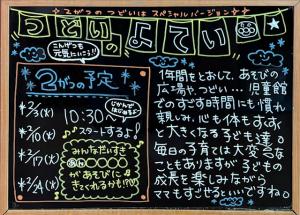 2がつの つどいは スペシャルバージョン
つどいのよてい
こんげつも
元気にいこう!!
2がつの予定
2/3(火)
2/10(火)
2/17(火)
2/24(火)
じかんで
はじめるよ!
10:30〜
スタートするよ!
みんなだいすき
○○○○○
があそびに
きてくれるかも!?
1年間をとおして、あそびの
広場や、つどい…児童館
でのすごす時間にも慣れ
親しみ、心も体もすくすく
と大きくなる子ども達。
毎日の子育ては大変な
こともありますが、子どもの
成長を楽しみながら
ママもすごせるといいですね。